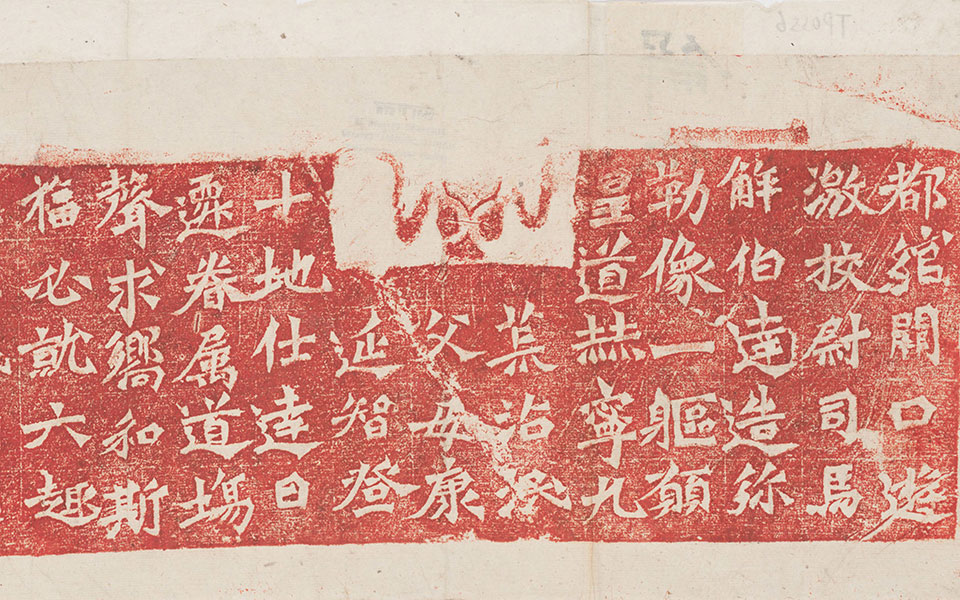 都綰闕口遊
激校尉司馬
解伯達造弥
勒像一軀願
皇道赫寧九
荒沾
父母康
延智登
十地仕達日
遷眷属道場
聲求嚮和斯
福必就六趣